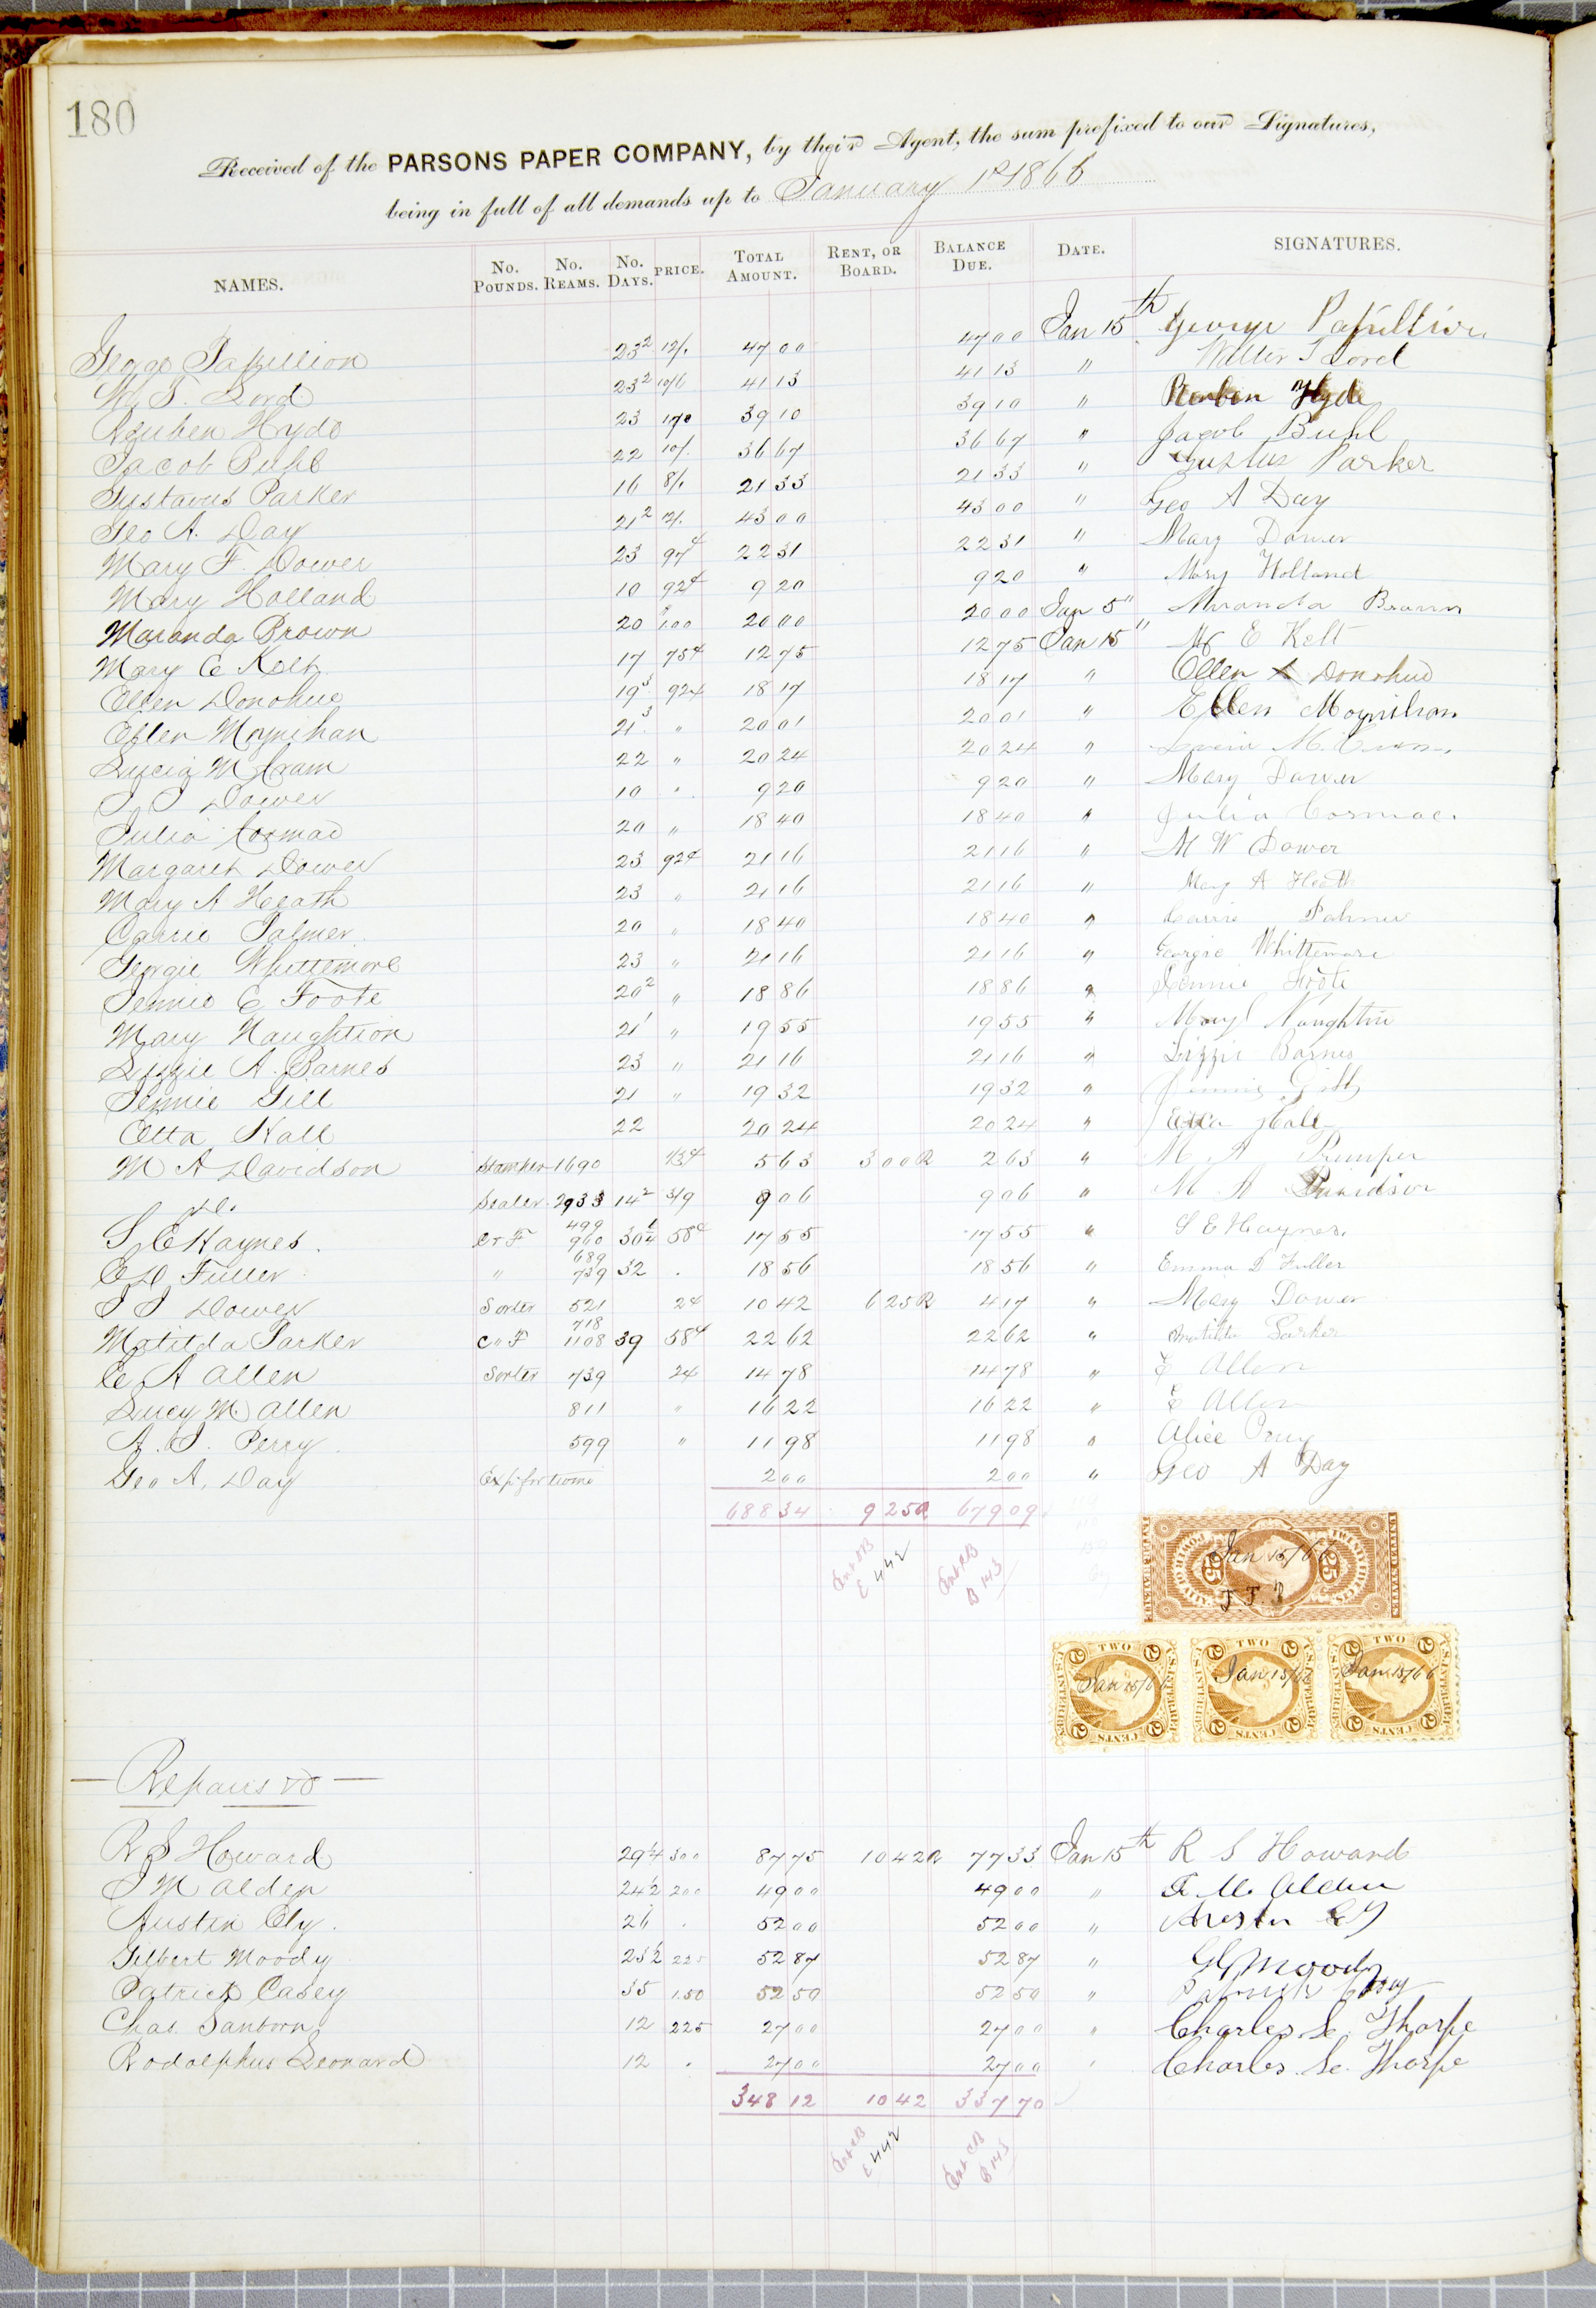 180
Received of the PARSONS PAPER COMPANY, by their Agent, the sum prefixed to our Signatures,
being in full of all demands up to January 1st 1866
NAMES. No. POUNDS. No. REAMS. No. DAYS. PRICE. TOTAL AMOUNT. RENT, OR BOARD. BALANCE DUE. DATE. SIGNATURES.
George Papillion 23² 12/. 47 00 47 00 Jan 15th George Papillion
W. T. Lord 23² 10/6 41 13 41 13 " Walter T Lord
Reuben Hyde 23 39 10 39 10 " Reuben Hyde
Jacob Buhl 22 10/. 36 67 36 67 " Jacob Buhl
Gustavus Parker 16 8/. 21 33 21 33 " Gustus Parker
Geo A. Day 21² 12/. 43 00 43 00 " Geo A Day
Mary F. Dower 23 97¢ 22 31 22 31 " Mary Dower
Mary Holland 10 92¢ 9 20 9 20 " Mary Holland
Maranda Brown 20 1.00 20 00 20 00 Jan 5" Miranda Brown
Mary E Kelt 17 75¢ 12 75 12 75 Jan 15" M E Kelt
Ellen Donohue 19³ 92¢ 18 17 18 17 " Ellen Donohue
Ellen Moynihan 21³ " 20 01 20 01 " Ellen Moynihan
Lucia M Cram 22 " 20 24 20 24 " M. Cram
J J Dower 10 " 9 20 9 20 " Mary Dower
Julia Cormac 20 " 18 40 18 40 " Julia Cormac.
Margaret Dower 23 92¢ 21 16 21 16 " M W Dower
Mary A Heath 23 " 21 16 21 16 " Mary A Heath
Carrie Palmer 20 " 18 40 18 40 " Carrie Palmer
Georgie Whittemore 23 " 21 16 21 16 " Georgie Whittemore
Jennie E Foote 20² " 18 86 18 86 " Jennie Foote
Mary Naughtion 21¹ " 19 55 19 55 " Mary Naughtin
Lizzie A. Barnes 23 " 21 16 21 16 " Lizzie Barnes
Jennie Gill 21 " 19 32 19 32 " Jennie Gill
Etta Hall 22 20 24 20 24 " Etta Hall
M A Davidson Stamper 1690 5 63 3 00 R 2 63 " M A
Do. Sealer 2933 14² 3/9 9 06 9 06 " M. A
S. E Haynes. C & F 499 960 30¼ 58¢ 17 55 17 55 " S E Haynes.
E D Fuller " 689 739 32 . 18 56 18 56 " Emma D Fuller
J J Dower Sorter 521 2¢ 10 42 6 25 R 4 17 " Mary Dower
Matilda Parker C " F 718 1108 39 58¢ 22 62 22 62 " Matilda Parker
E A Allen Sorter 739 2¢ 14 78 14 78 " E Allen
Lucy M. Allen 811 " 16 22 16 22 " E Allen
A. J. Perry 599 " 11 98 11 98 " Alice Perry
Geo A. Day 2 00 2 00 " Geo A Day
688 34 9 25 R 679 09
Ent RB E 442 B 143
Jan 15/66
25 25
TWENTY FIVE CENTS
UNITED STATES
J. F. P
TWO CENTS 2 U.S. INTER. REV. Jan 15/66
TWO CENTS 2 U.S. INTER. REV. Jan 15/66
TWO CENTS 2 U.S. INTER. REV. Jan 15/66
Repairs &c
R S Howard 29¼ 300 87 75 10 42 R 77 33 Jan 15th R S Howard
J M Alden 24½ 200 49 00 49 00 " J. M. Alden
Austin Ely. 26 . 52 00 52 00 " Austin Ely
Gilbert Moody 23½ 225 52 87 52 87 " G Moody
Patrick Casey 35 1.50 52 50 52 50 " Patrick Casey
Chas. Sanborn 12 225 27 00 27 00 " Charles S. Thorpe
Rodolphus Leonard 12 . 27 00 27 00 " Charles S. Thorpe
348 12 10 42 337 70
Ent RB E 442 Ent CB B 143